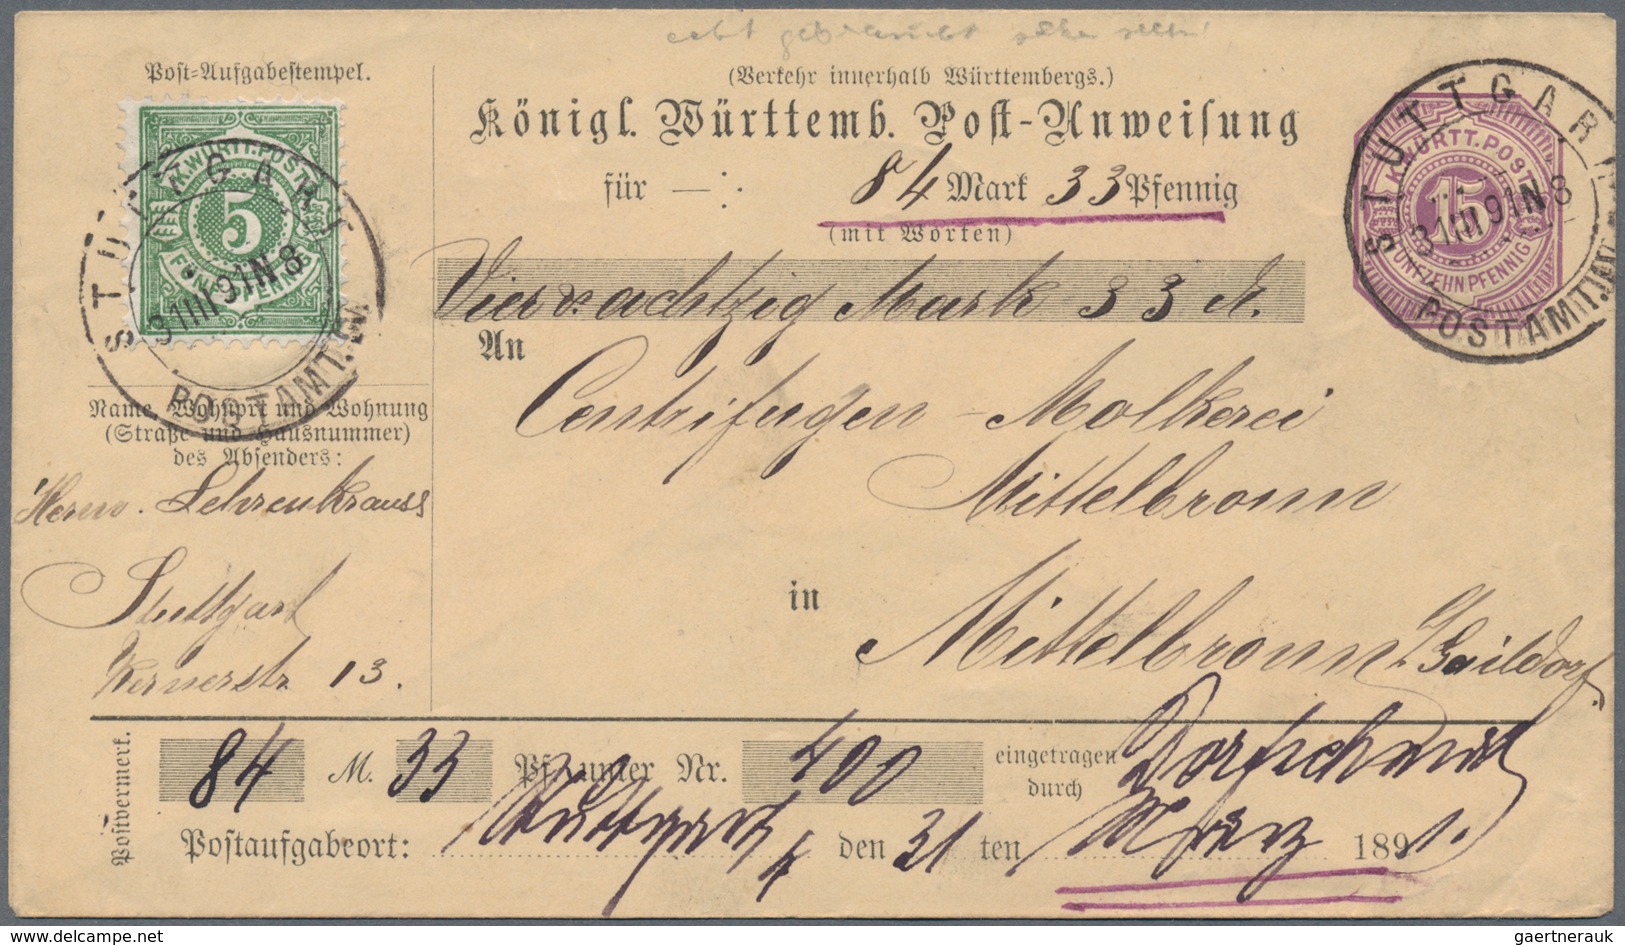 echt gebraucht
Post-Aufgabestempel.
(Verkehr innerhalb Württembergs.)
Königl. Württemb. Post-Anweisung
für — : 84 Mark 33 Pfennig
(mit Worten)
Vierundachtzig Mark 33
K. WÜRTT. POST
5
FÜNF PFENNIG
STUTTGART
31 III 91 N 8
POSTAMT
K. WÜRTT. POST
15
FÜNFZEHN PFENNIG
STUTTGART
31 III 91 N 8
POSTAMT
An
Centrifugen-Molkerei
Mittelbronn
in
Mittelbronn Gaildorf
Name, Wohnort und Wohnung
(Straße und Hausnummer)
des Absenders:
Lehrenkrauss
Stuttgart
Kernerstr. 13.
Postvermerk.
84 M. 33 Pf. unter Nr. 400 eingetragen durch
Postaufgabeort: Stuttgart 4 den 31 ten März 1891.
gaertnerauk